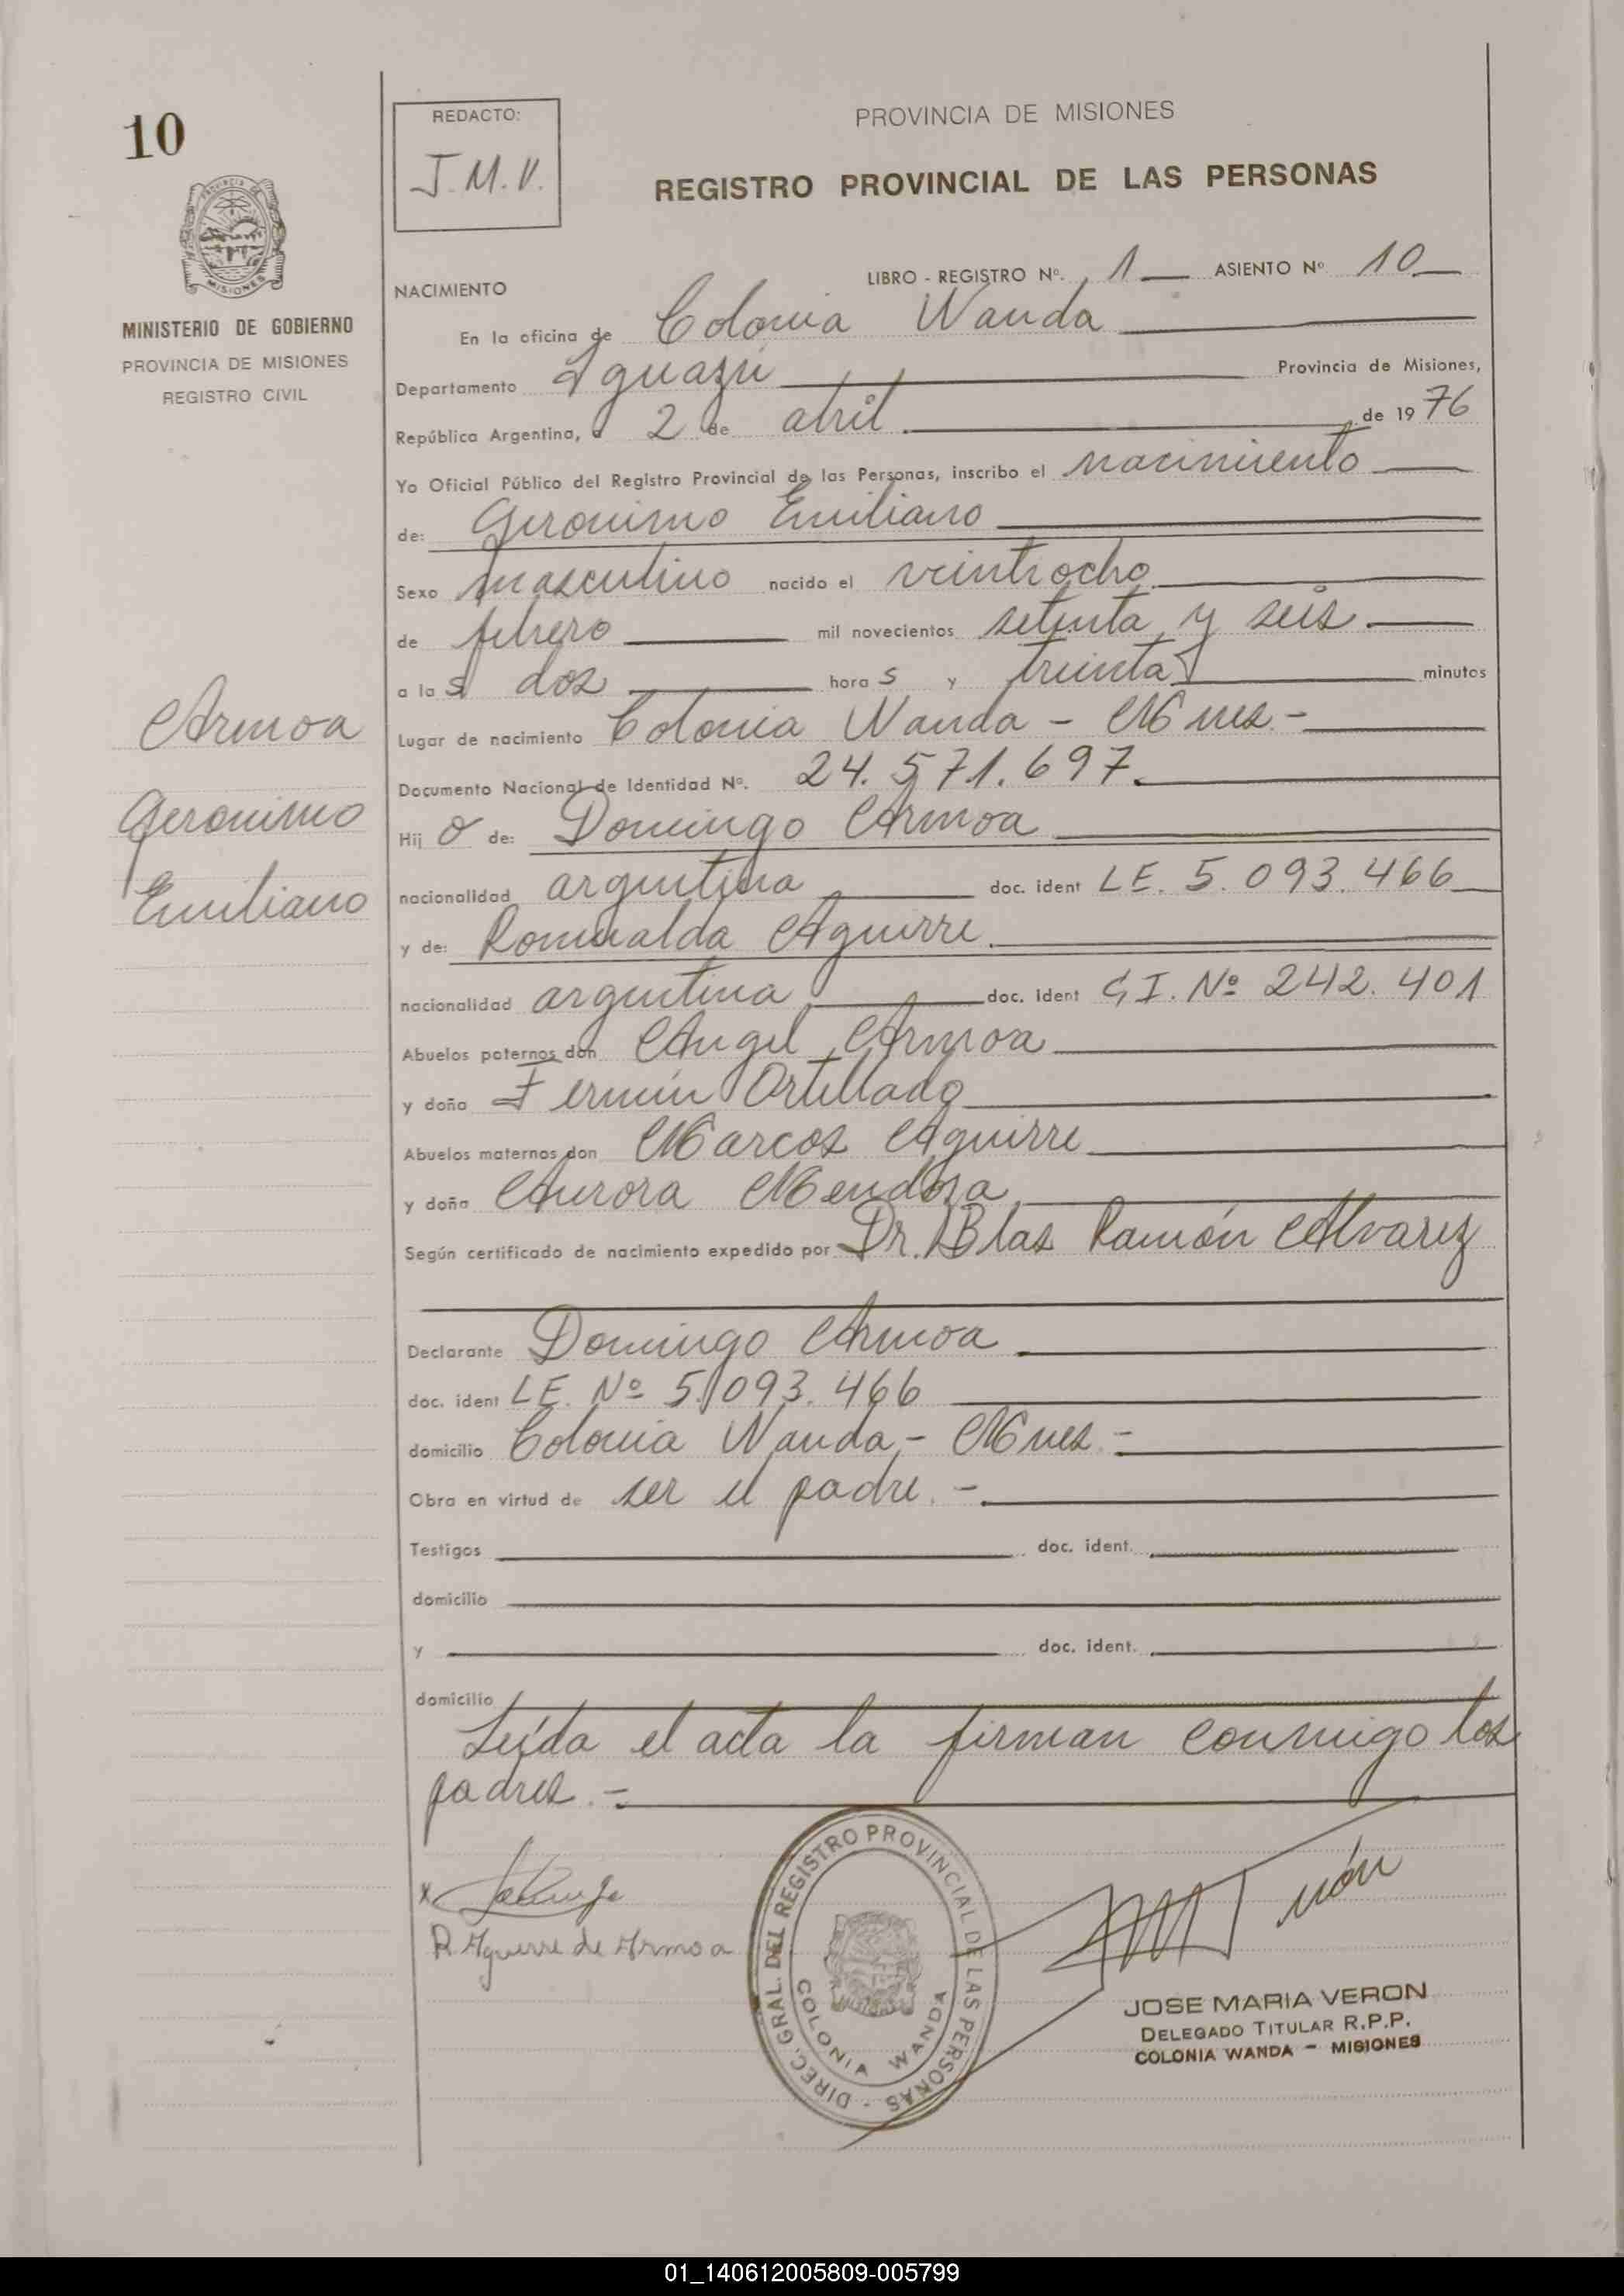 10
REDACTO:
J.M.V.
PROVINCIA DE MISIONES
REGISTRO PROVINCIAL DE LAS PERSONAS
MISIONES
MINISTERIO DE GOBIERNO
PROVINCIA DE MISIONES
REGISTRO CIVIL
LIBRO - REGISTRO Nº. 1 ASIENTO Nº 10
NACIMIENTO
En la oficina de Colonia Wanda
Departamento Iguazú Provincia de Misiones,
República Argentina, a 2 de abril de 1976
Yo Oficial Público del Registro Provincial de las Personas, inscribo el nacimiento
de: Geronimo Emiliano
Sexo masculino nacido el veintiocho
de febrero mil novecientos setenta y seis
a las dos horas y treinta minutos
Lugar de nacimiento Colonia Wanda - Mnes.-
Documento Nacional de Identidad Nº. 24.571.697.
Hijo de: Domingo Armoa
nacionalidad argentina doc. ident LE. 5.093.466
y de: Romualda Aguirre
nacionalidad argentina doc. ident C.I. Nº 242.401
Abuelos paternos don Angel Armoa
y doña Fermin Ortellado
Abuelos maternos don Marcos Aguirre
y doña Aurora Mendoza
Según certificado de nacimiento expedido por Dr. Blas Ramón Alvarez
Declarante Domingo Armoa
doc. ident LE. Nº 5.093.466
domicilio Colonia Wanda - Mnes.-
Obra en virtud de ser el padre.-
Testigos doc. ident.
domicilio
y doc. ident.
domicilio
Leída el acta la firman conmigo los
padres.-
Armoa
Geronimo
Emiliano
x
R Aguirre de Armoa
DIREC. GRAL. DEL REGISTRO PROVINCIAL DE LAS PERSONAS -
COLONIA WANDA
JOSE MARIA VERON
DELEGADO TITULAR R.P.P.
COLONIA WANDA - MISIONES
01_140612005809-005799